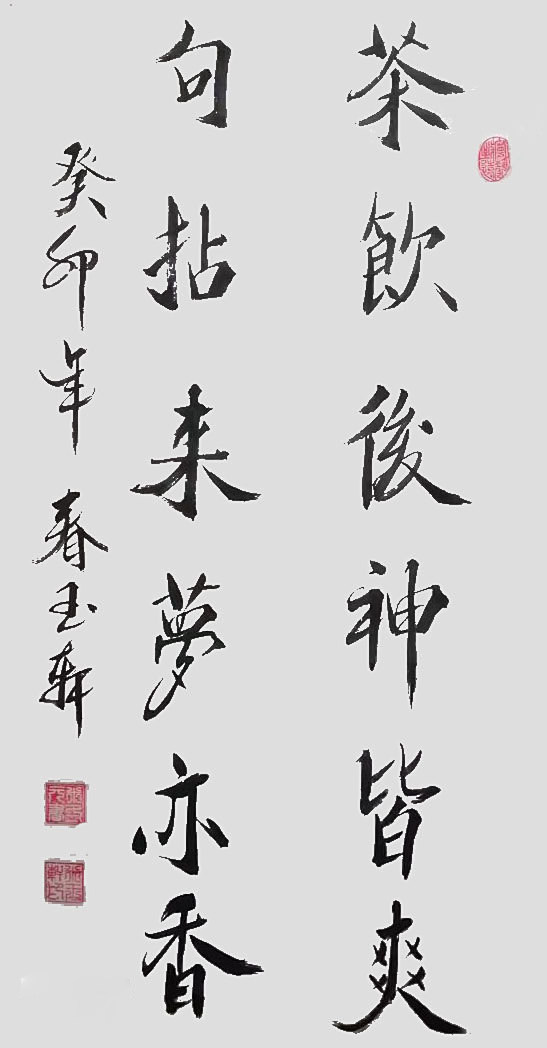 茶飲後神皆爽
句拈来夢亦香
癸卯年春玉軒